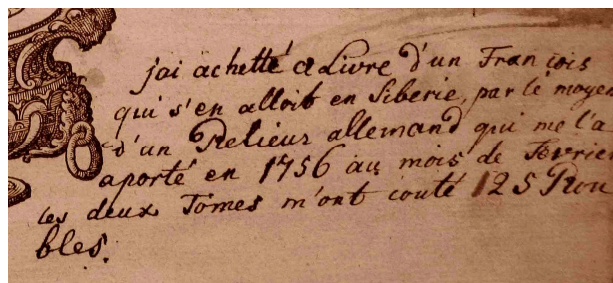 jai achetté ce Livre d'un François
qui s'en alloit en Siberie, par le moyen
d'un Relieur allemand qui me l'a
aporté en 1756 au mois de Fevrier
les deux Tomes m'ont couté 125 Rou
bles.